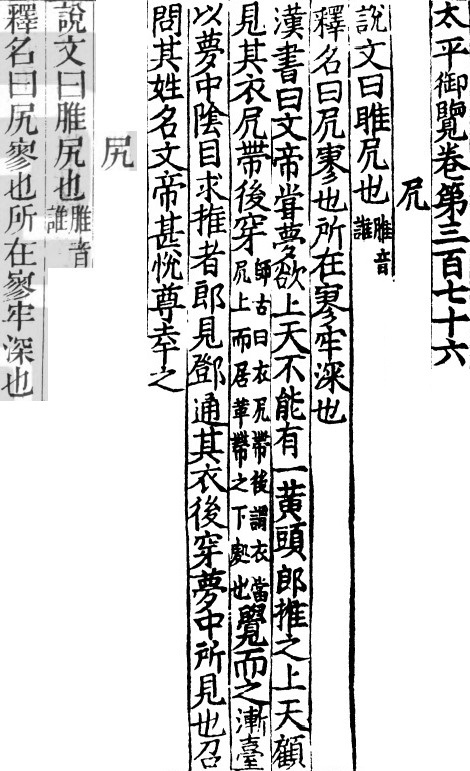 太平御覽卷第三百七十六
尻
說文曰睢尻也脽音誰
釋名曰尻寥也所在寥牢深也
漢書曰文帝甞夢欲上天不能有一黃頭郎推之上天顧
見其衣尻帶後穿師古曰衣尻帶後謂衣當尻上而居革帶之下處也覺而之漸臺
以夢中陰目求推者郎見鄧通其衣後穿夢中所見也召
問其姓名文帝甚恱尊幸之
尻
說文曰脽尻也脽音誰
釋名曰尻寥也所在寥牢深也